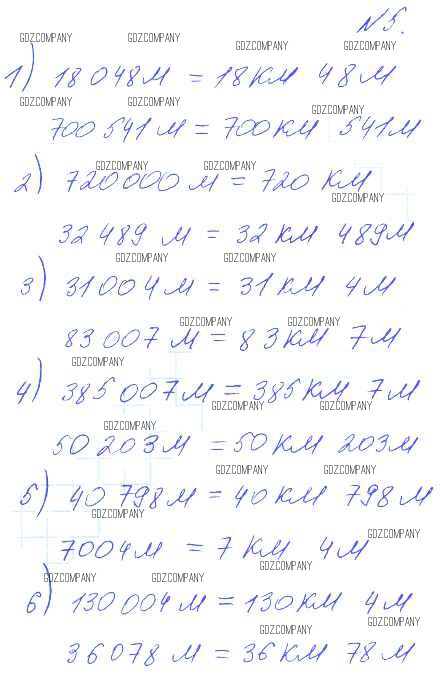 N5.
GDZCOMPANY GDZCOMPANY GDZCOMPANY GDZCOMPANY
1) 18 048 м = 18 км 48 м
GDZCOMPANY GDZCOMPANY GDZCOMPANY
700 541 м = 700 км 541 м
GDZCOMPANY GDZCOMPANY
2) 720000 м = 720 км
GDZCOMPANY
32 489 м = 32 км 489 м
GDZCOMPANY GDZCOMPANY
3) 31 004 м = 31 км 4 м
GDZCOMPANY GDZCOMPANY
83 007 м = 83 км 7 м
GDZCOMPANY
4) 385 007 м = 385 км 7 м
GDZCOMPANY GDZCOMPANY
GDZCOMPANY
50 203 м = 50 км 203 м
GDZCOMPANY GDZCOMPANY
5) 40 798 м = 40 км 798 м
GDZCOMPANY
GDZCOMPANY
7004 м = 7 км 4 м
GDZCOMPANY
GDZCOMPANY GDZCOMPANY
6) 130 004 м = 130 км 4 м
GDZCOMPANY GDZCOMPANY
36 078 м = 36 км 78 м
GDZCOMPANY